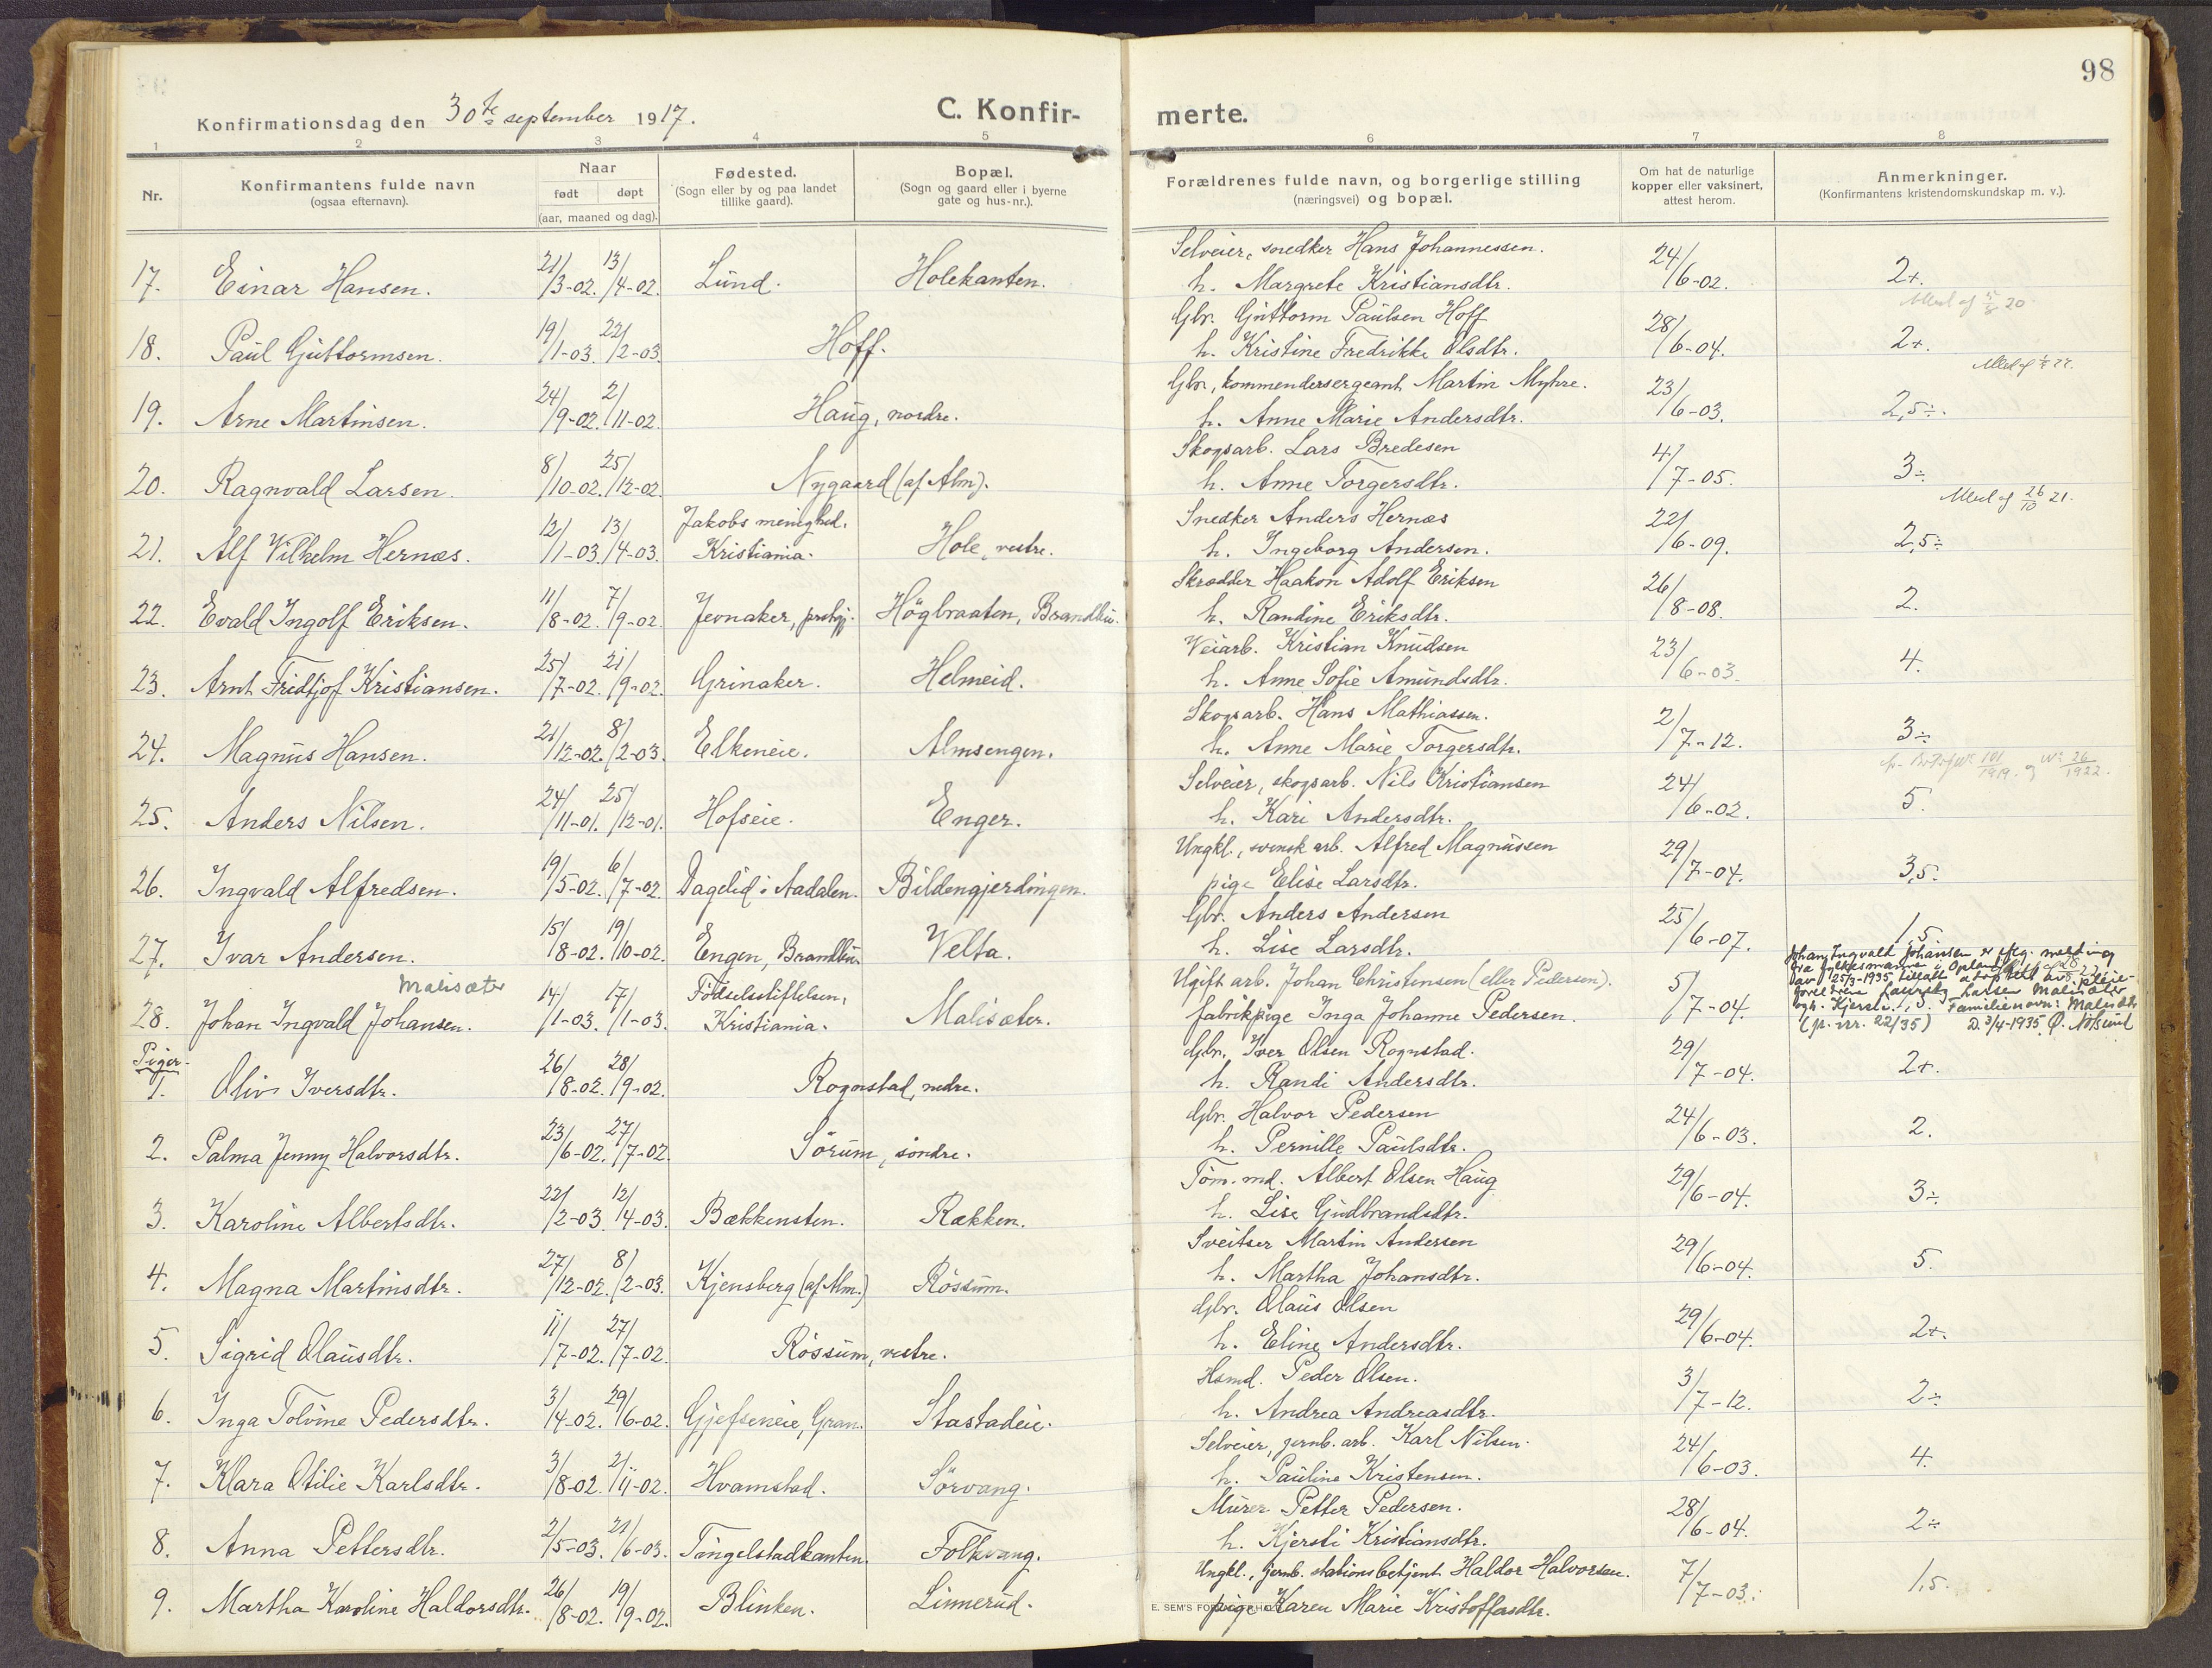 98
Konfirmationsdag den 30te september 1917.
C. Konfir-
merte.
1 2 3 4 5 6 7 8
Nr.
Konfirmantens fulde navn
(ogsaa efternavn).
Naar
født døpt
(aar, maaned og dag).
Fødested.
(Sogn eller by og paa landet
tillike gaard).
Bopæl.
(Sogn og gaard eller i byerne
gate og hus-nr.).
Forældrenes fulde navn, og borgerlige stilling
(næringsvei) og bopæl.
Om hat de naturlige
kopper eller vaksinert,
attest herom.
Anmerkninger.
(Konfirmantens kristendomskundskap m. v.).
Selveier, snedker Hans Johannessen.
17. Einar Hansen. 21/3-02. 13/4-02. Lund. Holekanten. h. Margrete Kristiansdtr. 24/6-02. 2+.
Gbr. Guttorm Paulsen Hoff
18. Paul Guttormsen. 19/1-03. 22/2-03. Hoff. h. Kristine Fredrikke Olsdtr. 28/6-04. 2+.
Gbr., kommendersergeant Martin Myhre.
19. Arne Martinsen. 24/9-02. 2/11-02. Haug, nordre. h. Anne Marie Andersdtr. 23/6-03. 2,5÷.
Skogsarb. Lars Bredesen
20. Ragnvald Larsen. 8/10-02. 25/12-02. Nygaard (af Alm). h. Anne Torgersdtr. 4/7-05. 3÷
26/10 21.
Jakobs menighed. Snedker Anders Hernæs
21. Alf Vilhelm Hernæs. 12/1-03. 13/4-03. Kristiania. Hole, vestre. h. Ingeborg Andersen. 22/6-09. 2,5÷
Skrædder Haakon Adolf Eriksen
22. Evald Ingolf Eriksen. 11/8-02. 7/9-02. Jevnaker, prstgj. Högbraaten, Brandbu. h. Randine Eriksdtr. 26/8-08. 2.
Veiarb. Kristian Knudsen
23. Arnt Fridtjof Kristiansen. 25/7-02. 21/9-02. Grinaker. Helmeid. h. Anne Sofie Amundsdtr. 23/6-03. 4.
Skogsarb. Hans Mathiassen.
24. Magnus Hansen. 21/12-02. 8/2-03. Elkeneie. Almsengen. h. Anne Marie Torgersdtr. 2/7-12. 3÷
101/1919. og No 26/1922.
Selveier, skogsarb. Nils Kristiansen
25. Anders Nilsen. 24/11-01. 25/12-01. Hofseie. Enger. h. Kari Andersdtr. 24/6-02. 5.
Ungkl., svensk arb. Alfred Magnussen
26. Ingvald Alfredsen. 19/5-02. 6/7-02. Dagelid i Aadalen. Bildengjerdingen. pige Elise Larsdtr. 29/7-04. 3,5.
Gbr. Anders Andersen
27. Ivar Andersen. 15/8-02. 19/10-02. Engen, Brandbu. Velta. h. Lise Larsdtr. 25/6-07. 1,5.
Malisæter
Födselsstiftelsen, Ugift arb. Johan Christensen (eller Pedersen).
28. Johan Ingvald Johansen. 14/1-03. 17/1-03. Kristiania. Malisæter. fabrikpige Inga Johanne Pedersen. 5/7-04.
Johan Ingvald Johansen er iflg. melding
fra fylkesmannen i Opland
av 25/3-1935 tillatt adoptert av pleie-
foreldrene Laurits Larsen Malisæter
og h. Kjersti. Familienavn: Malisæter
(jr. nr. 22/35) D. 3/4-1935.
Piger.
Gbr. Iver Olsen Rognstad.
1. Oliv Iversdtr. 26/8-02. 28/9-02. Rognstad, nedre. h. Randi Andersdtr. 29/7-04. 2+.
Gbr. Halvor Pedersen
2. Palma Jenny Halvorsdtr. 23/6-02. 27/7-02. Sörum, söndre. h. Pernille Paulsdtr. 24/6-03. 2.
Töm.md. Albert Olsen Haug
3. Karoline Albertsdtr. 22/2-03. 12/4-03. Bækkensten. Rækken. h. Lise Gudbrandsdtr. 29/6-04. 3÷
Sveitser Martin Andersen
4. Magna Martinsdtr. 27/12-02. 8/2-03. Kjensberg (af Alm.) Rössum. h. Martha Johansdtr. 29/6-04. 5.
Gbr. Olaus Olsen
5. Sigrid Olausdtr. 11/7-02. 27/7-02. Rössum, vestre. h. Eline Andersdtr. 29/6-04. 2+.
Hsmd. Peder Olsen.
6. Inga Tolvine Pedersdtr. 3/4-02. 29/6-02. Gjefseneie, Gran. Stastadeie. h. Andrea Andreasdtr. 3/7-12. 2÷
Selveier, jernb. arb. Karl Nilsen.
7. Klara Otilie Karlsdtr. 3/8-02. 2/11-02. Hvamstad. Sörvang. h. Pauline Kristensen. 24/6-03. 4.
Murer Petter Pedersen.
8. Anna Pettersdtr. 2/5-03. 21/6-03. Tingelstadkanten. Folkvang. h. Kjersti Kristiansdtr. 28/6-04. 2÷
Ungkl., jernb. stationsbetjent Haldor Halvorsen.
9. Martha Karoline Haldorsdtr. 26/8-02. 19/9-02. Blinken. Linnerud. pige Karen Marie Kristoffersdtr. 7/7-03. 1,5.
E. SEM'S